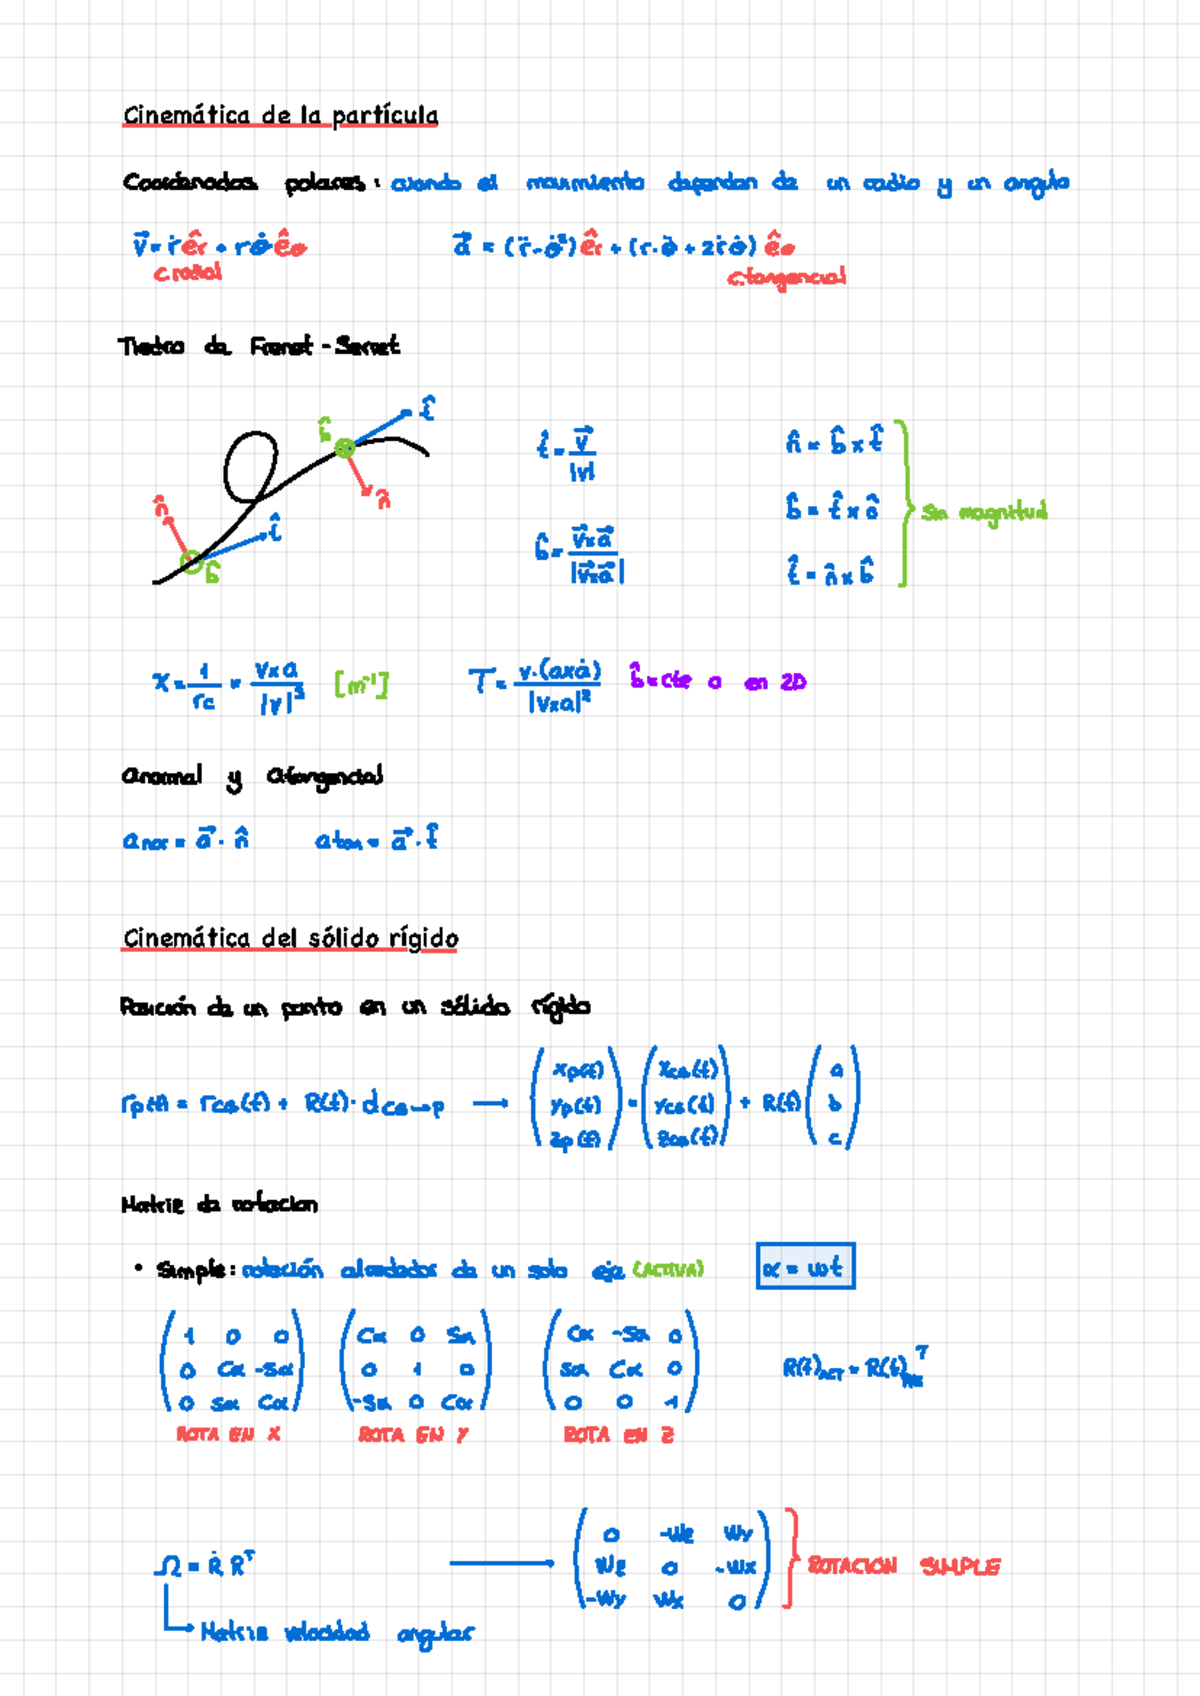 Cinemática de la partícula
Coordenadas polares: cuando el movimiento dependen de un radio y un angulo
v⃗ = ṙ êr + r θ̇ êθ    a⃗ = (r̈ - θ̇²) êr + (r·θ̈ + 2ṙθ̇) êθ
C. radial    C. tangencial
Triedro de Frenet-Serret
b̂ t̂ n̂
n̂ t̂ b̂
t̂ = v⃗/|v|    n̂ = b̂ x t̂
b̂ = t̂ x n̂    Sin magnitud
b̂ = v⃗xa⃗/|v⃗xa⃗|    t̂ = n̂ x b̂
χ = 1/rc = vxa/|v|³ [m⁻¹]    T = v·(axȧ)/|vxa|²    b̂ = cte o en 2D
anormal y atangencial
anor = a⃗ · n̂    atan = a⃗ · t̂
Cinemática del sólido rígido
Posición de un punto en un sólido rígido
rp(t) = rCG(t) + R(t) · dCG→p → (xp(t) yp(t) zp(t)) = (xCG(t) yCG(t) zCG(t)) + R(t) (a b c)
Matriz de rotacion
• Simple: rotación alrededor de un solo eje (ACTIVA)    α = wt
1 0 0    Cα 0 Sα    Cα -Sα 0
0 Cα -Sα    0 1 0    Sα Cα 0    R(t)ACT = R(t)    T
0 Sα Cα    -Sα 0 Cα    0 0 1
ROTA EN X    ROTA EN Y    ROTA EN Z
0 -Wz Wy
Ω = Ṙ Rᵀ → Wz 0 -Wx    ROTACION SIMPLE
-Wy Wx 0
Matriz velocidad angular